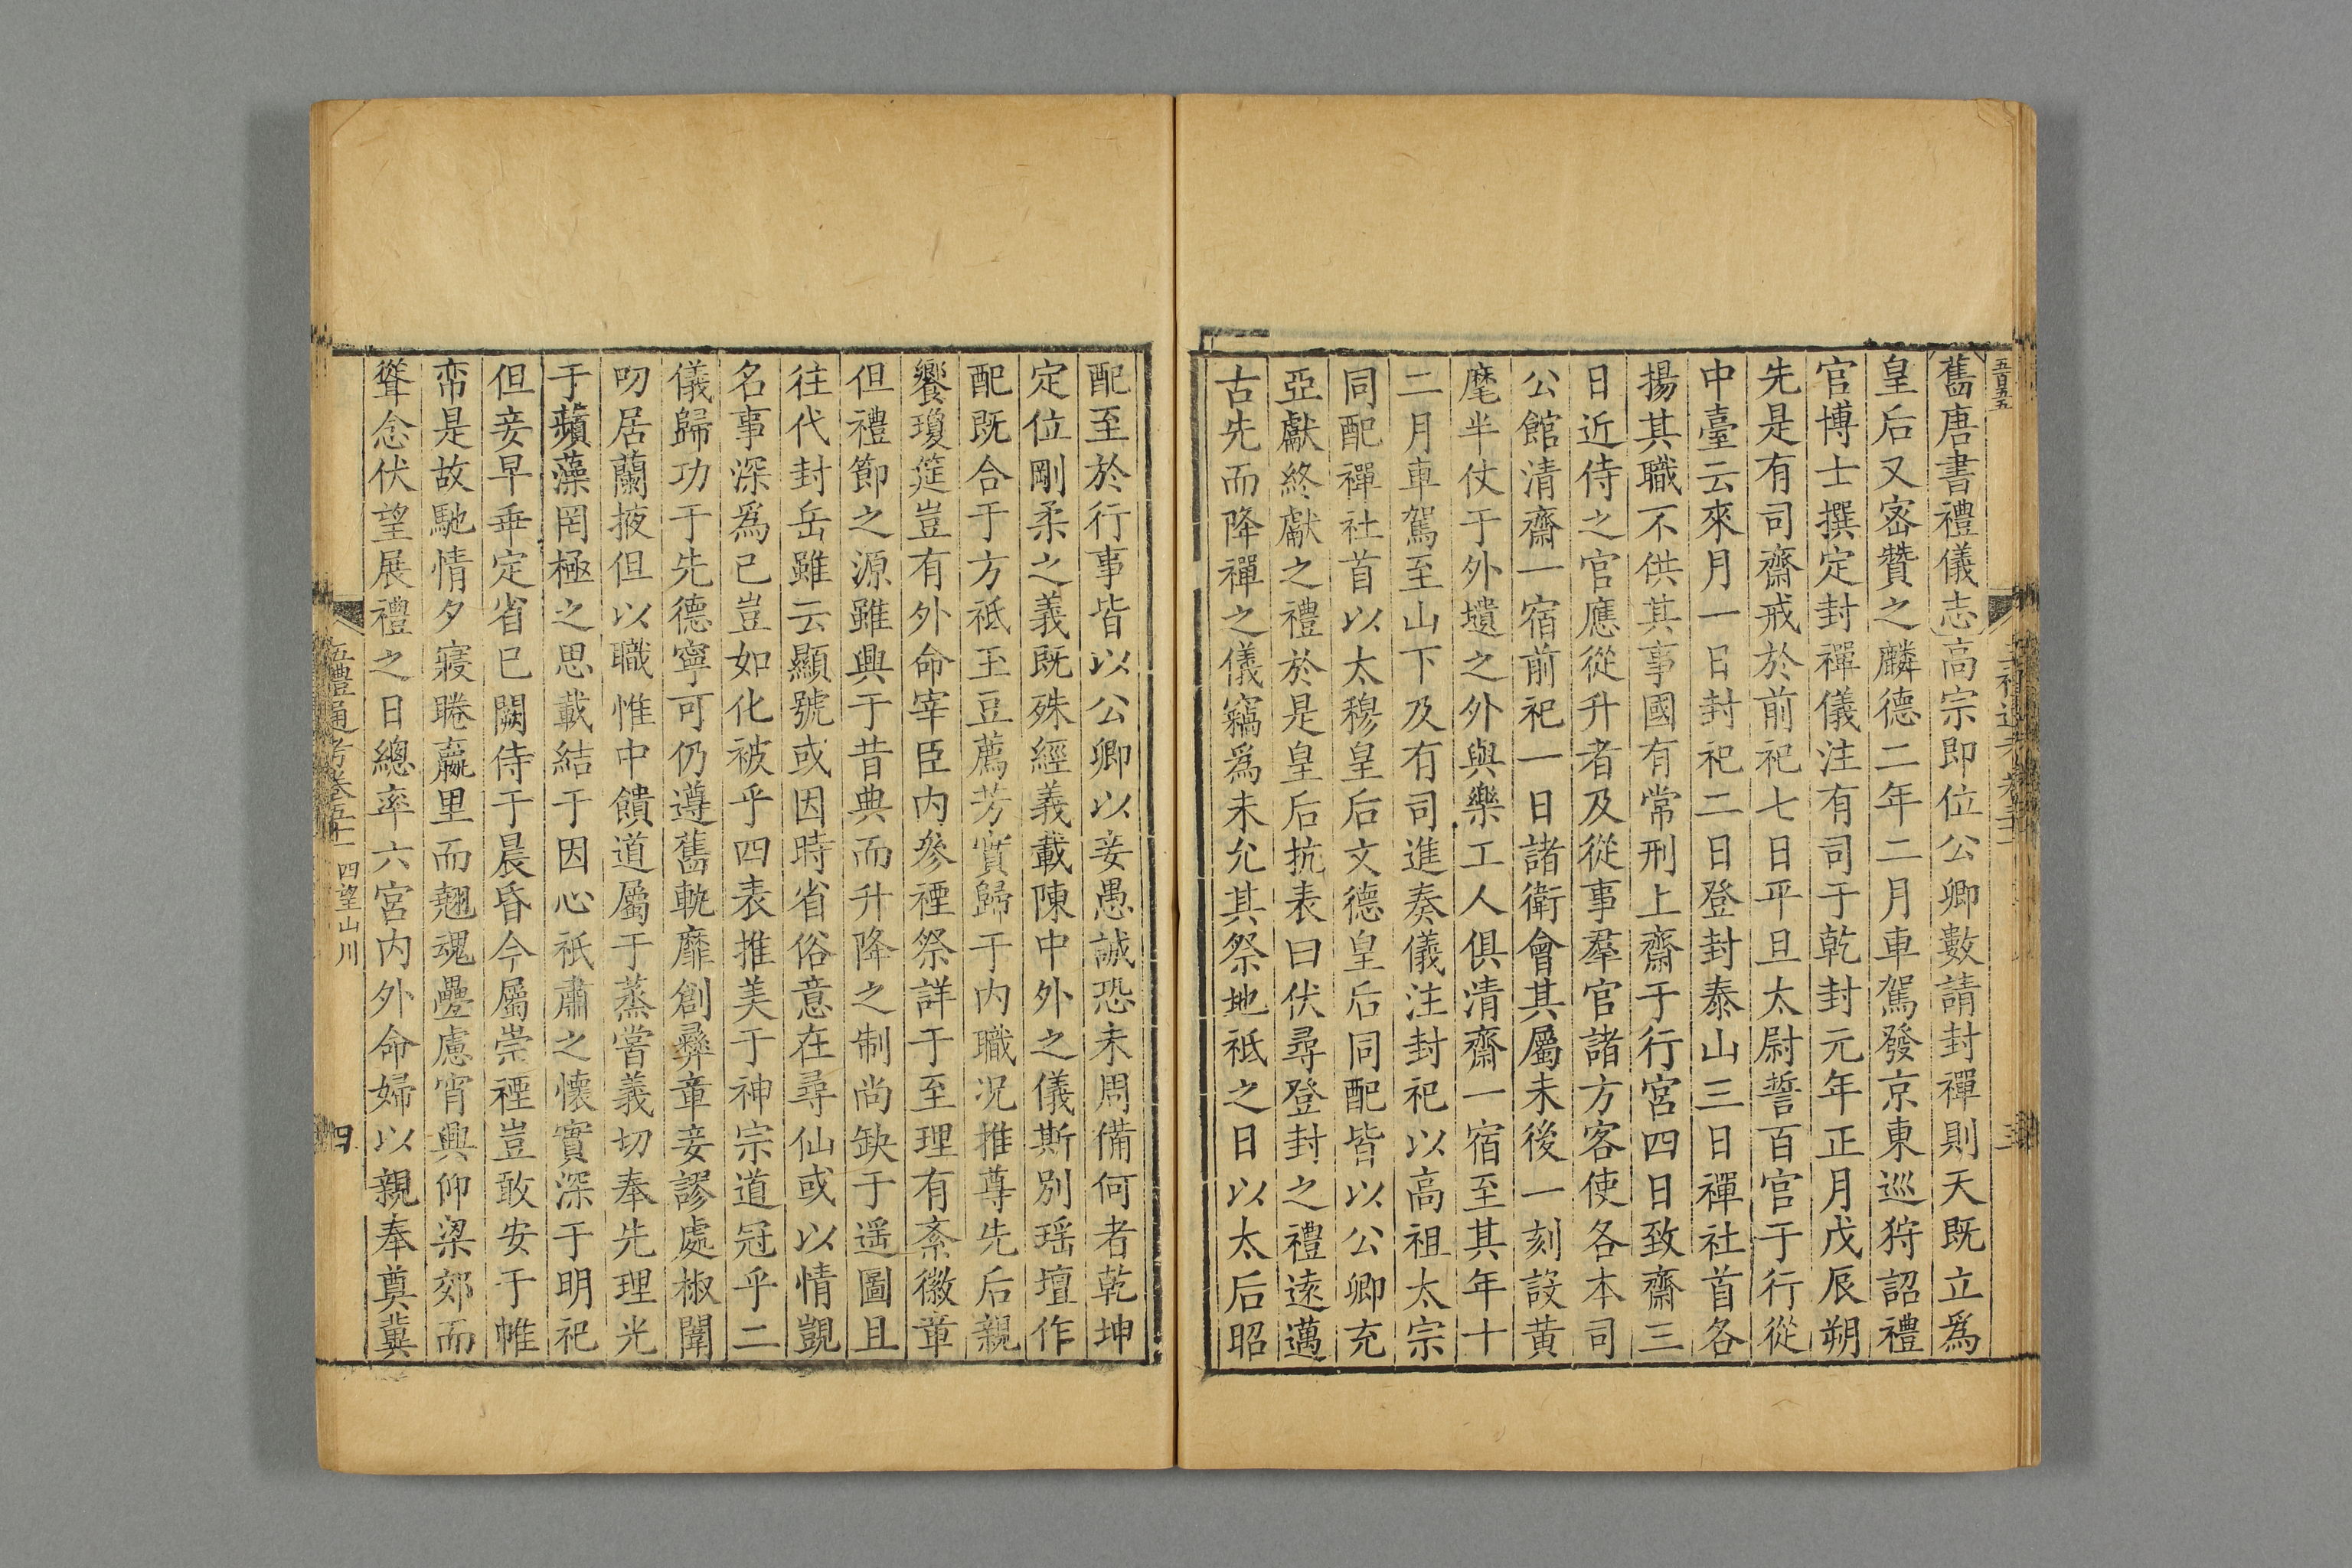 五百五五
舊唐書禮儀志高宗即位公卿數請封禪則天既立爲
皇后又宻贊之麟德二年二月車駕發京東巡狩詔禮
官博士撰定封禪儀注有司于乾封元年正月戊辰朔
先是有司齋戒於前祀七日平旦太尉誓百官于行從
中臺云來月一日封祀二日登封泰山三日禪社首各
揚其職不供其事國有常刑上齋于行宮四日致齋三
日近侍之官應從升者及從事羣官諸方客使各本司
公館清齋一宿前祀一日諸衛會其屬未後一刻設黃
麾半仗于外壝之外與樂工人俱清齋一宿至其年十
二月車駕至山下及有司進奏儀注封祀以高祖太宗
同配禪社首以太穆皇后文德皇后同配皆以公卿充
亞獻終獻之禮於是皇后抗表曰伏尋登封之禮遠邁
古先而降禪之儀竊爲未允其祭地祇之日以太后昭
配至於行事皆以公卿以妾愚誠恐未周備何者乾坤
定位剛柔之義既殊經義載陳中外之儀斯別瑶壇作
配既合于方祇玉豆薦芳實歸于内職况推尊先后親
饗瓊筵豈有外命宰臣内參禋祭詳于至理有紊徽章
但禮節之源雖興于昔典而升降之制尚缺于遥圖且
往代封岳雖云顯號或因時省俗意在尋仙或以情覬
名事深爲己豈如化被乎四表推美于神宗道冠乎二
儀歸功于先德寧可仍遵舊軌靡創彝章妾謬處椒闈
叨居蘭掖但以職惟中饋道屬于蒸嘗義切奉先理光
于蘋藻罔極之思載結于因心祇肅之懷實深于明祀
但妾早乖定省已闕侍于晨昏今屬崇禋豈敢安于帷
帟是故馳情夕寢睠嬴里而翹魂疊慮宵興仰梁郊而
聳念伏望展禮之日總率六宮内外命婦以親奉奠冀
五禮通考卷五十 四望山川